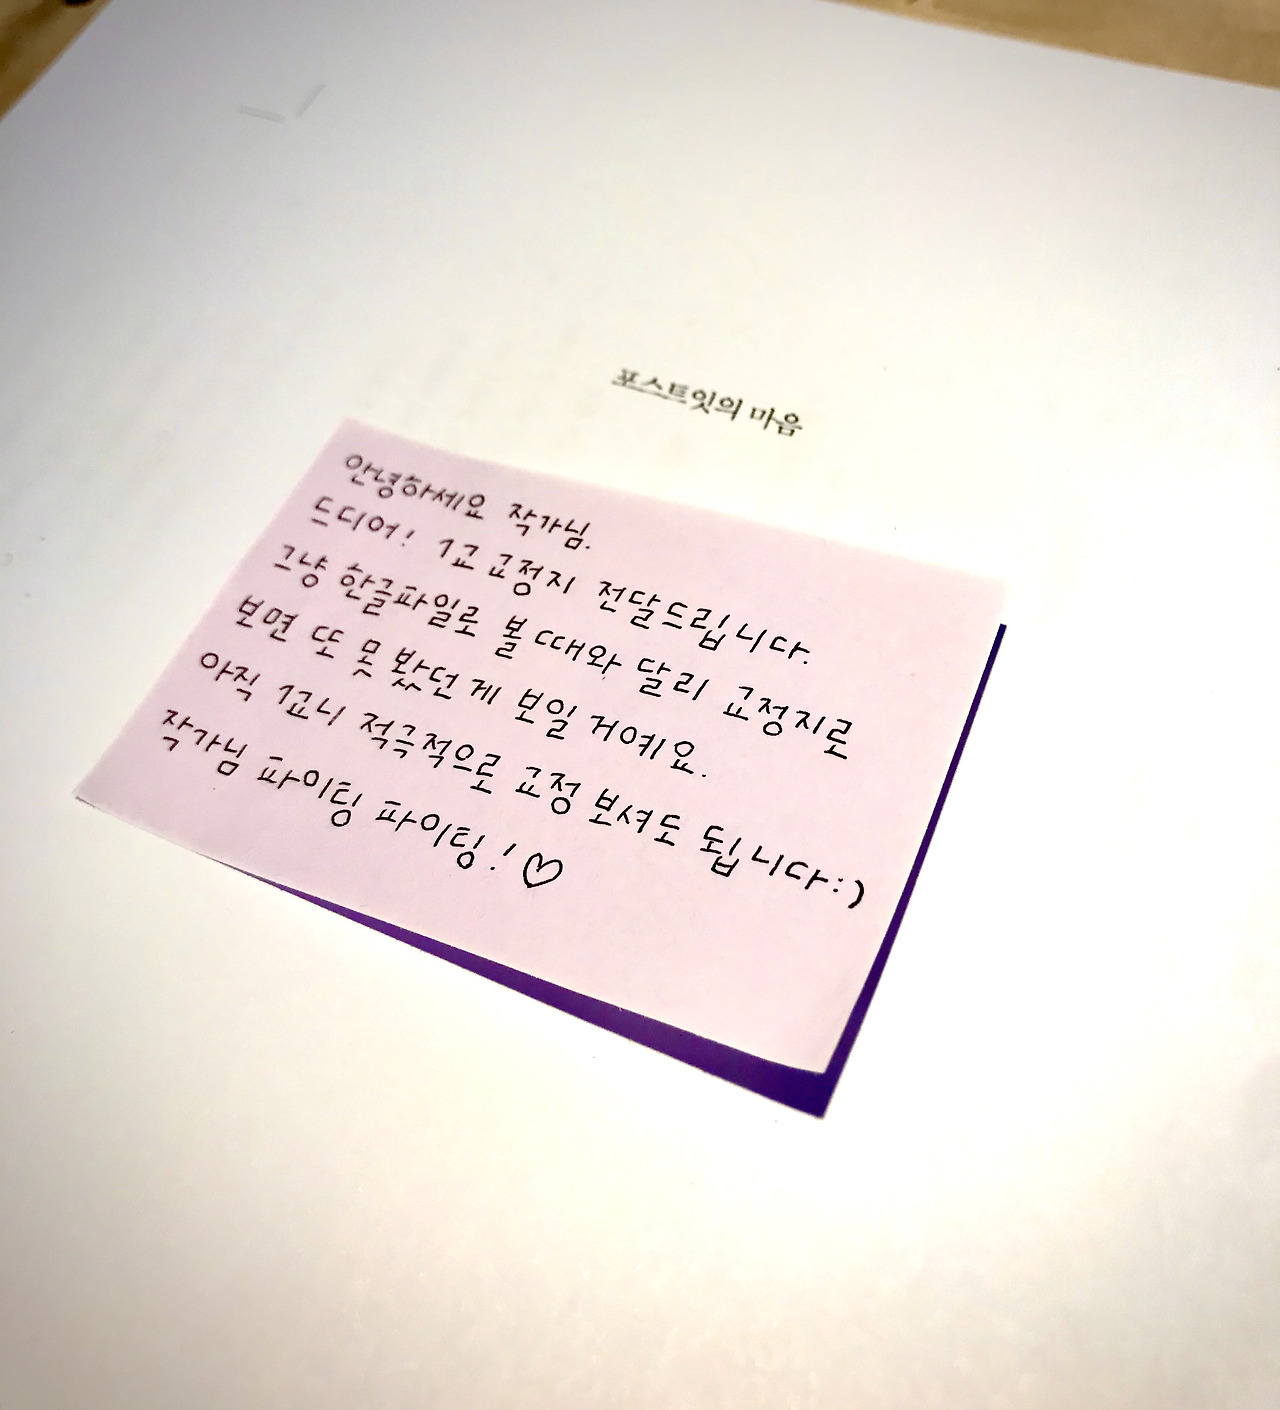 포스트잇의 마음
안녕하세요 작가님.
드디어! 1교 교정지 전달드립니다.
그냥 한글파일로 볼 때와 달리 교정지로
보면 또 못 봤던 게 보일 거예요.
아직 1교니 적극적으로 교정 보셔도 됩니다:)
작가님 파이팅 파이팅!♡